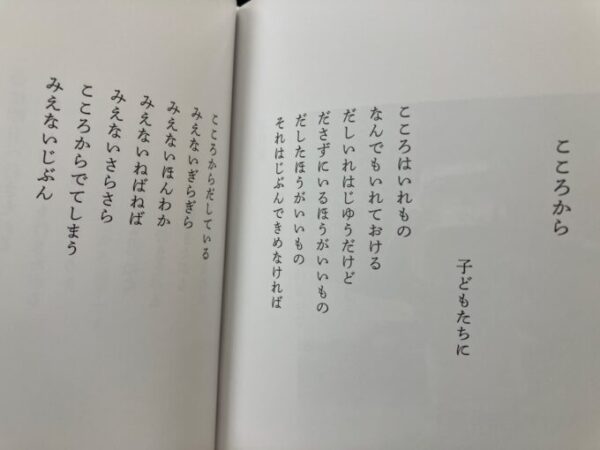 こころから
子どもたちに
こころはいれもの
なんでもいれておける
だしいれはじゆうだけど
ださずにいるほうがいいもの
だしたほうがいいもの
それはじぶんできめなければ
こころからだしている
みえないぎらぎら
みえないほんわか
みえないねばねば
みえないさらさら
こころからでてしまう
みえないじぶん